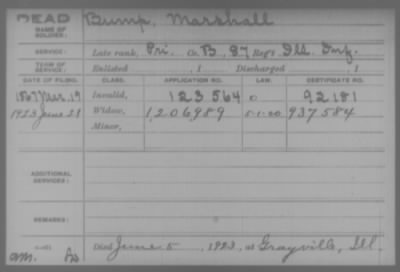 DEAD Bump, Marshall
NAME OF SOLDIER:
SERVICE: Late rank, Pri. Co. B, 87 Reg't Ill. Inf.
TERM OF SERVICE: Enlisted , 1 Discharged , 1
DATE OF FILING. CLASS. APPLICATION NO. LAW. CERTIFICATE NO.
1867 Mar. 19 Invalid, 123564 92181
1923 June 21 Widow, 1206989 5-1-20 937584
Minor,
ADDITIONAL SERVICES:
REMARKS:
Died June 5, 1923, at Grayville, Ill.